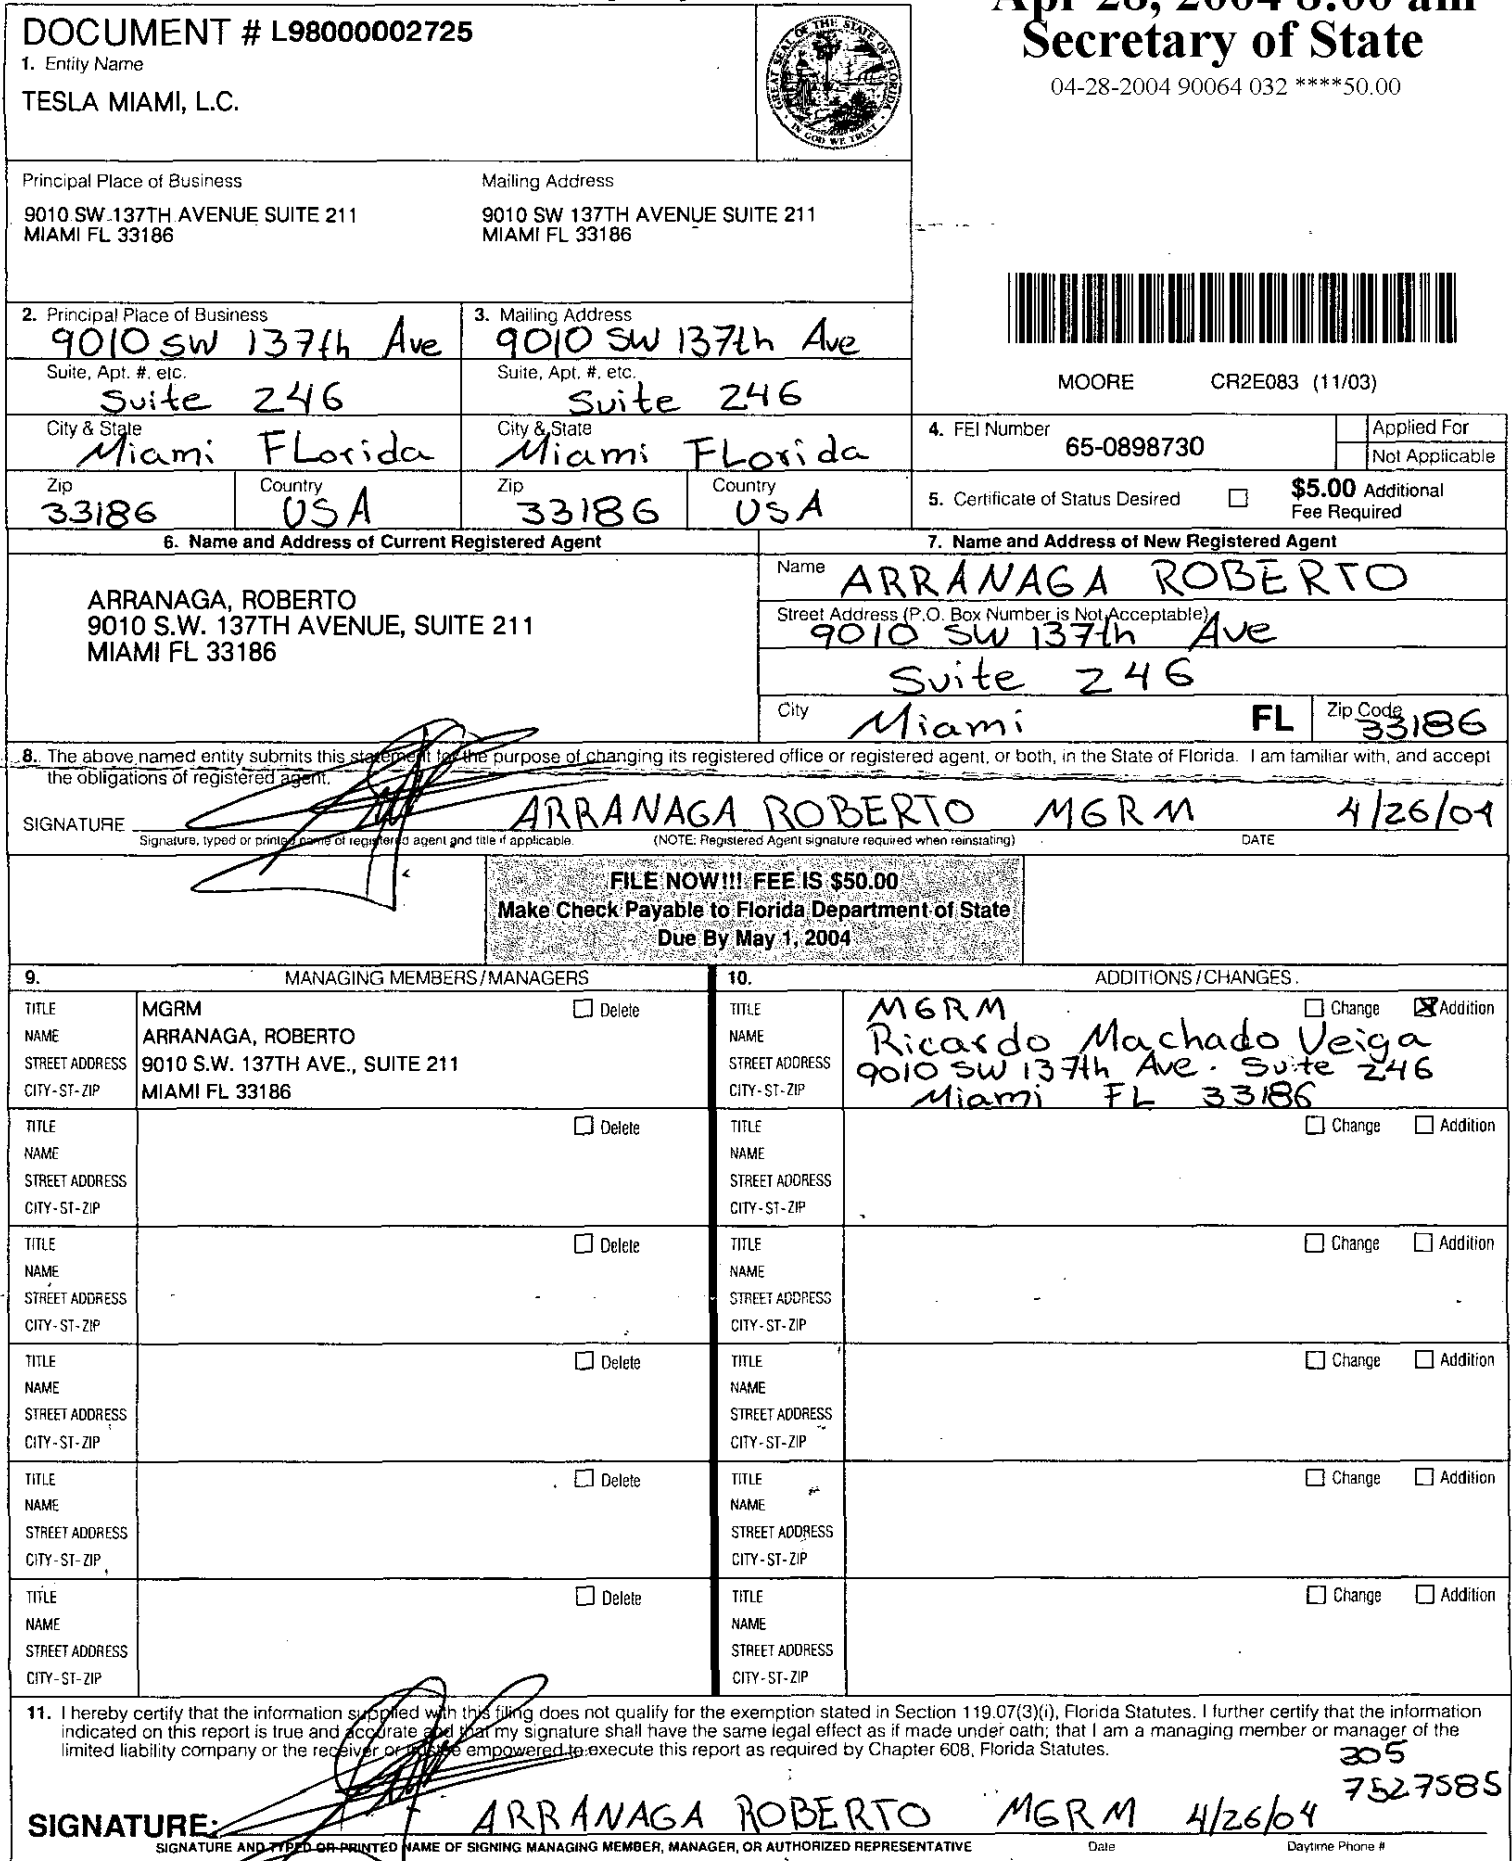 Apr 28, 2004 8:00 am
Secretary of State
04-28-2004 90064 032 ****50.00
DOCUMENT # L98000002725
1. Entity Name
TESLA MIAMI, L.C.
GREAT SEAL OF THE STATE OF FLORIDA
IN GOD WE TRUST
Principal Place of Business
9010 SW 137TH AVENUE SUITE 211
MIAMI FL 33186
Mailing Address
9010 SW 137TH AVENUE SUITE 211
MIAMI FL 33186
2. Principal Place of Business
9010 SW 137th Ave
Suite, Apt. #, etc.
Suite 246
City & State
Miami FLorida
Zip
33186
Country
USA
3. Mailing Address
9010 SW 137th Ave
Suite, Apt. #, etc.
Suite 246
City & State
Miami FLorida
Zip
33186
Country
USA
MOORE CR2E083 (11/03)
4. FEI Number
65-0898730
Applied For
Not Applicable
5. Certificate of Status Desired
$5.00 Additional
Fee Required
6. Name and Address of Current Registered Agent
ARRANAGA, ROBERTO
9010 S.W. 137TH AVENUE, SUITE 211
MIAMI FL 33186
7. Name and Address of New Registered Agent
Name
ARRANAGA ROBERTO
Street Address (P.O. Box Number is Not Acceptable)
9010 SW 137th Ave
Suite 246
City
Miami
FL
Zip Code
33186
8. The above named entity submits this statement for the purpose of changing its registered office or registered agent, or both, in the State of Florida. I am familiar with, and accept
the obligations of registered agent.
SIGNATURE ARRANAGA ROBERTO MGRM 4/26/04
Signature, typed or printed name of registered agent and title if applicable. (NOTE: Registered Agent signature required when reinstating) DATE
FILE NOW!!! FEE IS $50.00
Make Check Payable to Florida Department of State
Due By May 1, 2004
9. MANAGING MEMBERS/MANAGERS
TITLE MGRM Delete
NAME ARRANAGA, ROBERTO
STREET ADDRESS 9010 S.W. 137TH AVE., SUITE 211
CITY-ST-ZIP MIAMI FL 33186
TITLE Delete
NAME
STREET ADDRESS
CITY-ST-ZIP
TITLE Delete
NAME
STREET ADDRESS
CITY-ST-ZIP
TITLE Delete
NAME
STREET ADDRESS
CITY-ST-ZIP
TITLE Delete
NAME
STREET ADDRESS
CITY-ST-ZIP
TITLE Delete
NAME
STREET ADDRESS
CITY-ST-ZIP
10. ADDITIONS/CHANGES
TITLE MGRM Change Addition
NAME Ricardo Machado Veiga
STREET ADDRESS 9010 SW 137th Ave. Suite 246
CITY-ST-ZIP Miami FL 33186
TITLE Change Addition
NAME
STREET ADDRESS
CITY-ST-ZIP
TITLE Change Addition
NAME
STREET ADDRESS
CITY-ST-ZIP
TITLE Change Addition
NAME
STREET ADDRESS
CITY-ST-ZIP
TITLE Change Addition
NAME
STREET ADDRESS
CITY-ST-ZIP
TITLE Change Addition
NAME
STREET ADDRESS
CITY-ST-ZIP
11. I hereby certify that the information supplied with this filing does not qualify for the exemption stated in Section 119.07(3)(i), Florida Statutes. I further certify that the information
indicated on this report is true and accurate and that my signature shall have the same legal effect as if made under oath; that I am a managing member or manager of the
limited liability company or the receiver or trustee empowered to execute this report as required by Chapter 608, Florida Statutes.
305
7527585
SIGNATURE: ARRANAGA ROBERTO MGRM 4/26/04
SIGNATURE AND TYPED OR PRINTED NAME OF SIGNING MANAGING MEMBER, MANAGER, OR AUTHORIZED REPRESENTATIVE Date Daytime Phone #